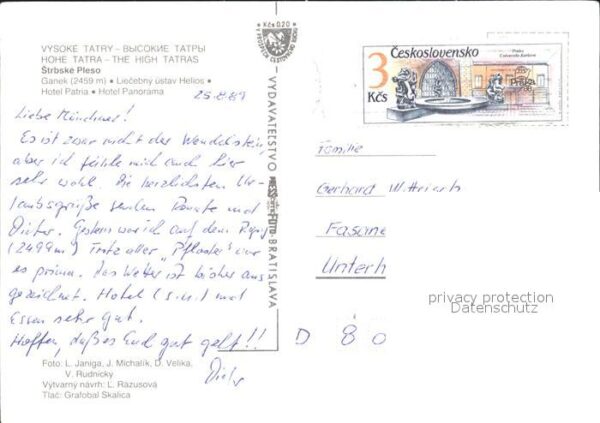 VYSOKE TATRY - ВЫСОКИЕ ТАТРЫ
HOHE TATRA - THE HIGH TATRAS
Štrbské Pleso
Ganek (2459 m) • Liečebný ústav Helios •
Hotel Patria • Hotel Panorama
25.8.89
Liebe Münchner!
Es ist zwar nicht der Wendelstein,
aber ich fühle mich auch hier
sehr wohl. Die herzlichsten Ur-
laubsgrüße senden Renate und
Dieter. Gestern war ich auf dem Rysy
(2499m) Trotz aller war
es prima. Das Wetter ist bisher aus
gezeichnet. Hotel (s.u.) und
Essen sehr gut.
Hoffen, daß es Euch gut geht!!
Dieter
Foto: L. Janiga, J. Michalík, D. Velika,
V. Rudnický
Výtvarný návrh: L. Razusová
Tlač: Grafobal Skalica
Kčs 0,20
VYDAVATEĽSTVO
BRATISLAVA
Československo
3
Kčs
Praha
Familie
Gerhard
Fasane
Unterh
privacy protection
Datenschutz
D 80